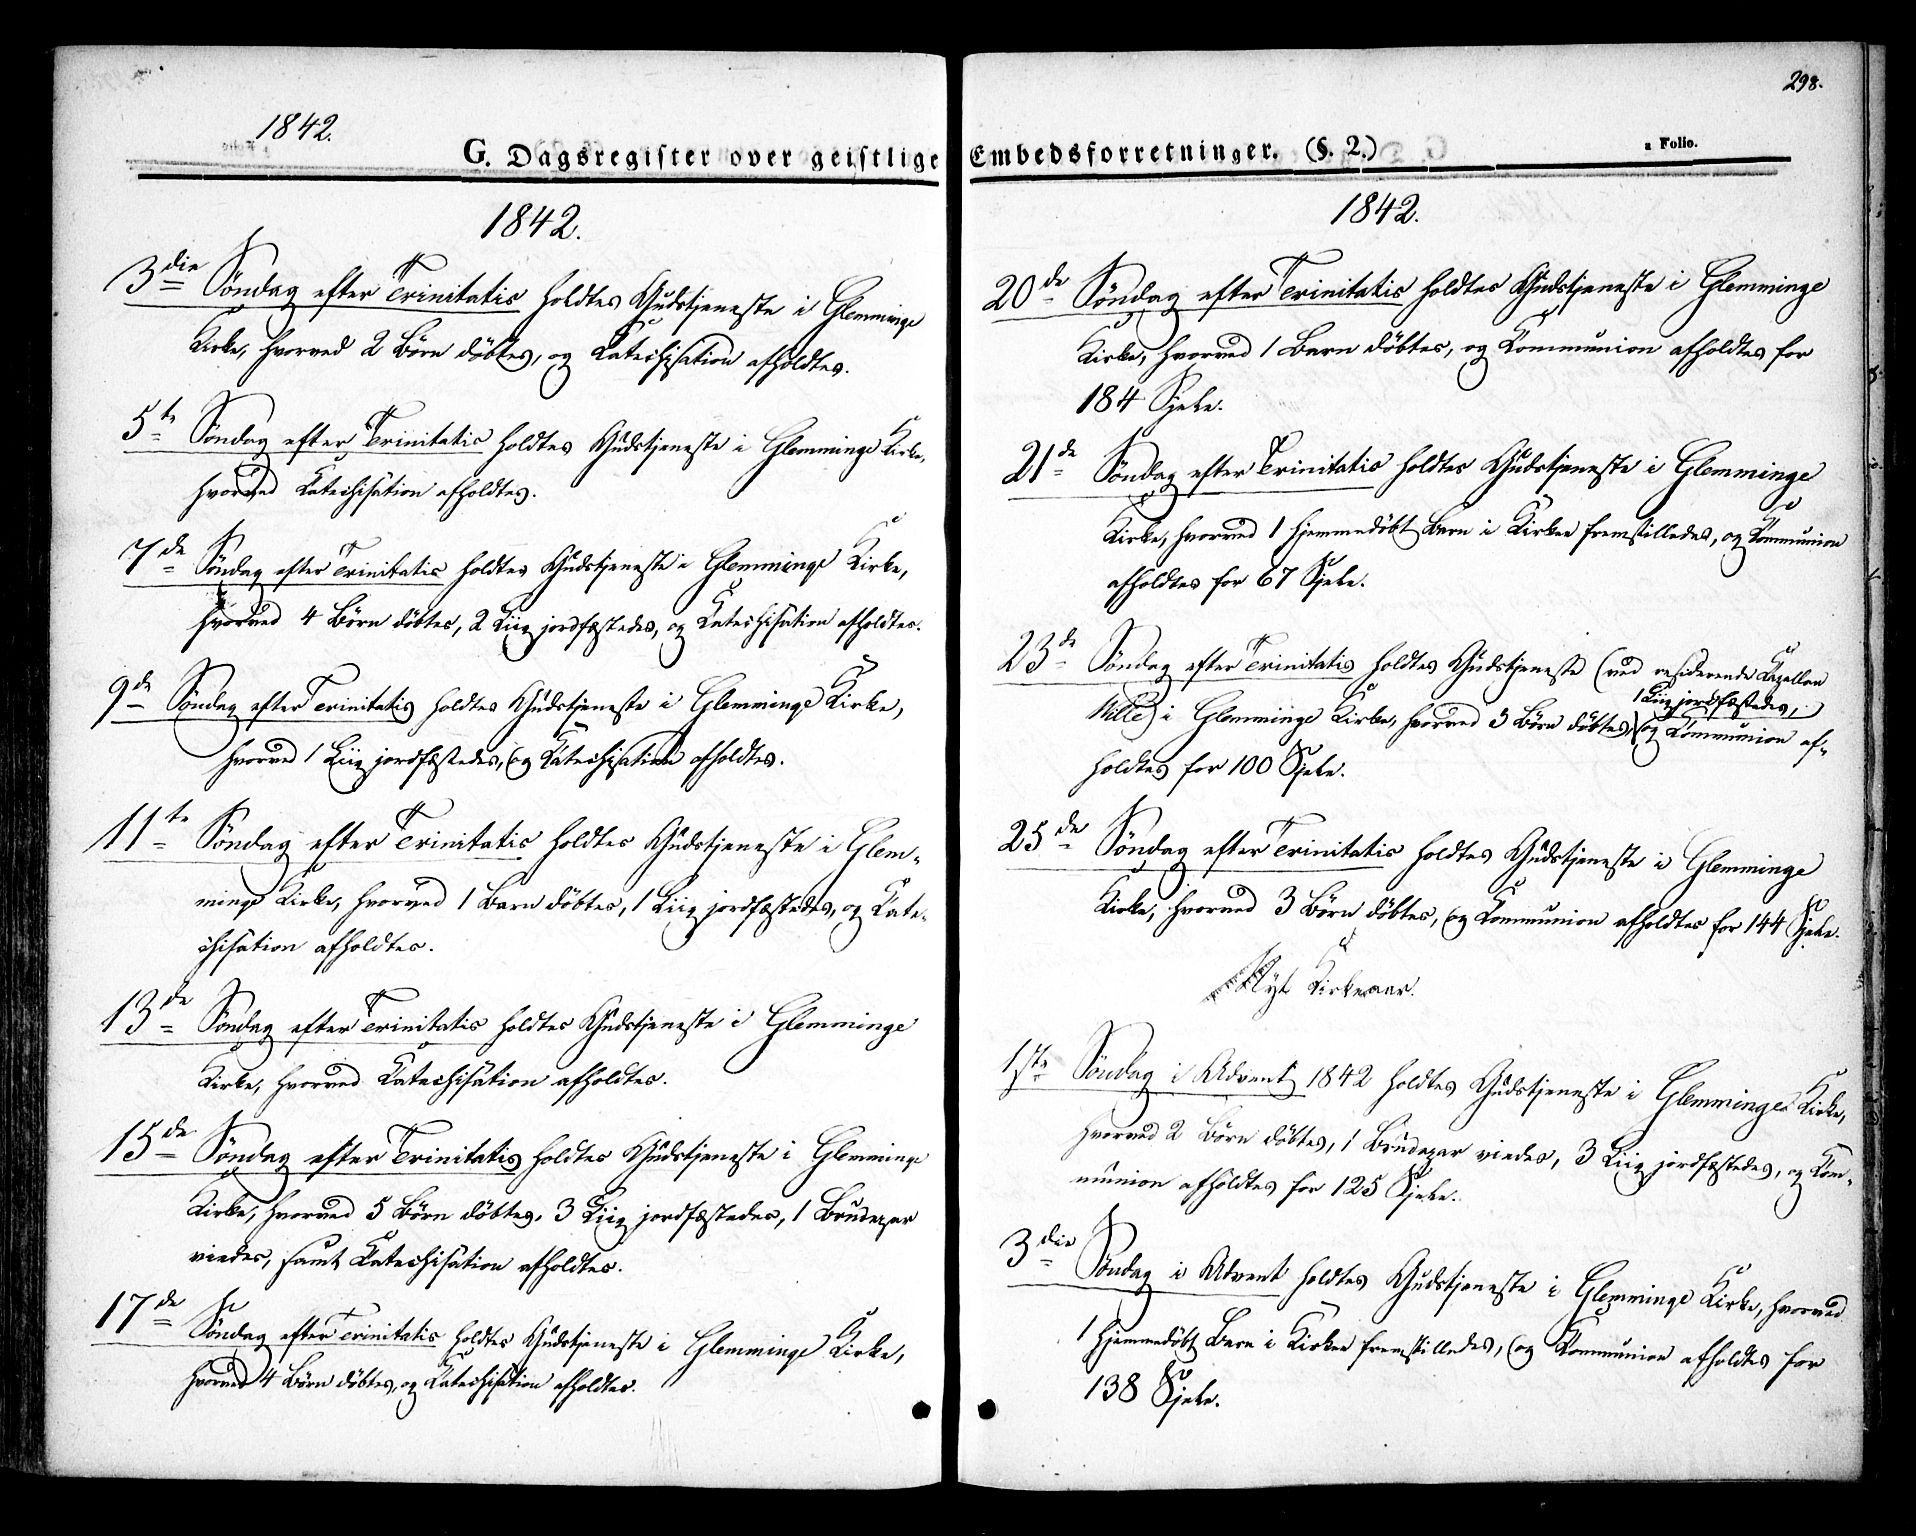 298.
1842.
G. Dagsregister over geistlige Embedsforretninger. (§. 2.)
a Folio.
1842.
3die Søndag efter Trinitatis holdtes Gudstjeneste i Glemminge
Kirke, hvorved 2 Børn døbtes, og Katechisation afholdtes.
5te Søndag efter Trinitatis holdtes Gudstjeneste i Glemminge Kirke,
hvorved Katechisation afholdtes.
7de Søndag efter Trinitatis holdtes Gudstjeneste i Glemminge Kirke,
hvorved 4 Børn døbtes, 2 Liig jordfæstedes, og Katechisation afholdtes.
9de Søndag efter Trinitatis holdtes Gudstjeneste i Glemminge Kirke,
hvorved 1 Liig jordfæstedes, og Katechisation afholdtes.
11te Søndag efter Trinitatis holdtes Gudstjeneste i Glem-
minge Kirke, hvorved 1 Barn døbtes, 1 Liig jordfæstedes, og Kate-
chisation afholdtes.
13de Søndag efter Trinitatis holdtes Gudstjeneste i Glemminge
Kirke, hvorved Katechisation afholdtes.
15de Søndag efter Trinitatis holdtes Gudstjeneste i Glemminge
Kirke, hvorved 5 Børn døbtes, 3 Liig jordfæstedes, 1 Brudepar
viedes, samt Katechisation afholdtes.
17de Søndag efter Trinitatis holdtes Gudstjeneste i Glemminge Kirke,
hvorved 4 Børn døbtes, og Katechisation afholdtes.
1842.
20de Søndag efter Trinitatis holdtes Gudstjeneste i Glemminge
Kirke, hvorved 1 Barn døbtes, og Kommunion afholdtes for
184 Sjele.
21de Søndag efter Trinitatis holdtes Gudstjeneste i Glemminge
Kirke, hvorved 1 hjemmedøbt Barn i Kirken fremstilledes, og Kommunion
afholdtes for 67 Sjele.
23de Søndag efter Trinitatis holdtes Gudstjeneste (ved residerende Kapellan
1 Liig jordfæstedes,
Wille) i Glemminge Kirke, hvorved 3 Børn døbtes, og Kommunion af-
holdtes for 100 Sjele.
25de Søndag efter Trinitatis holdtes Gudstjeneste i Glemminge
Kirke, hvorved 3 Børn døbtes, og Kommunion afholdtes for 144 Sjele.
Nyt Kirkeaar.
1ste Søndag i Advent 1842 holdtes Gudstjeneste i Glemminge Kirke,
hvorved 2 Børn døbtes, 1 Brudepar viedes, 3 Liig jordfæstedes, og Kom-
munion afholdtes for 125 Sjele.
3die Søndag i Advent holdtes Gudstjeneste i Glemminge Kirke, hvorved
1 hjemmedøbt Barn i Kirken fremstilledes, og Kommunion afholdtes for
138 Sjele.